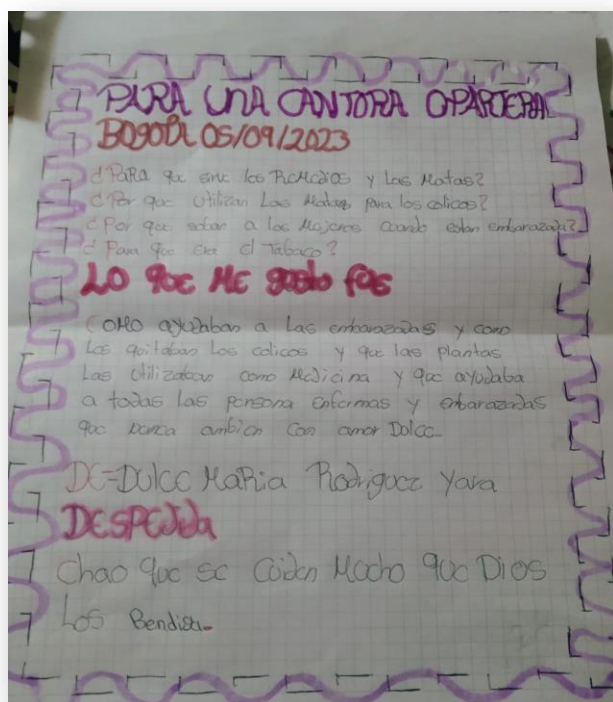 PARA UNA CANTORA O PARTERA
BOGOTA 05/09/2023
¿PARA que sirve los ReMedios y Las Matas?
¿Por que utilizan Las Matas para los colicos?
¿Por que soban a las Mujeres cuando estan embarazada?
¿Para que el Tabaco?
LO que Me gusto fue
COMO ayudaban a Las embarazadas y como
Les quitaban Los colicos y que las plantas
Las utilizaban como Medicina y que ayudaba
a todas las persona enfermas y enbarazadas
que con amor Dulce
DE=Dulce MaRia Rodriguez Yara
DESPEDIda
Chao que se Cuiden Mucho que Dios
Los Bendiga.